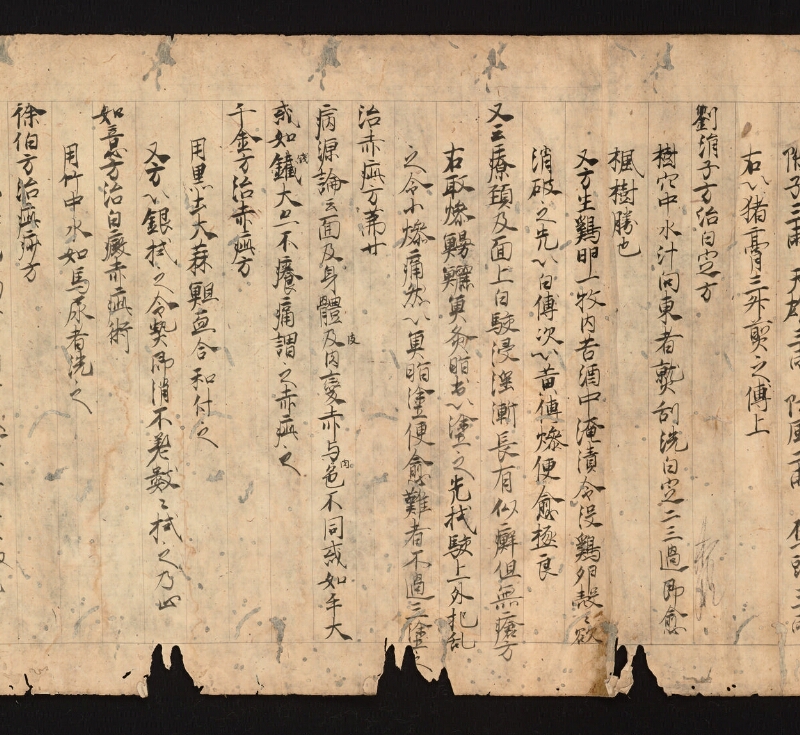 附子三兩 天雄三兩 防風二兩
右以猪膏三升煎之傅上
劉涓子方治白定方
樹穴中水汁向東者熟刮洗白定二三過即愈
楓樹勝也
又方生鷄卵一枚内苦酒中淹漬令没鷄卵殼欲
消破之先以白傅次以黄傅燥便愈極良
又云療頚及面上白駮浸淫漸長有似癬但無瘡方
右取燥鰻鱺魚炙脂出以塗之先拭駮上外把乱
之令小燥痛然以魚脂塗便愈難者不過三塗之
治赤疵方第廿
病源論云面及身體皮及肉變赤与肉色不同或如手大
或如錢大亦不癢痛謂之赤疵也
千金方治赤疵方
用黒大蒜鯤血合和付之
又方以銀拭之令熱即消不差數〻拭之乃止
如意方治白癜赤疵術
用竹中水如馬尿者洗之
徐伯方治疵疥方